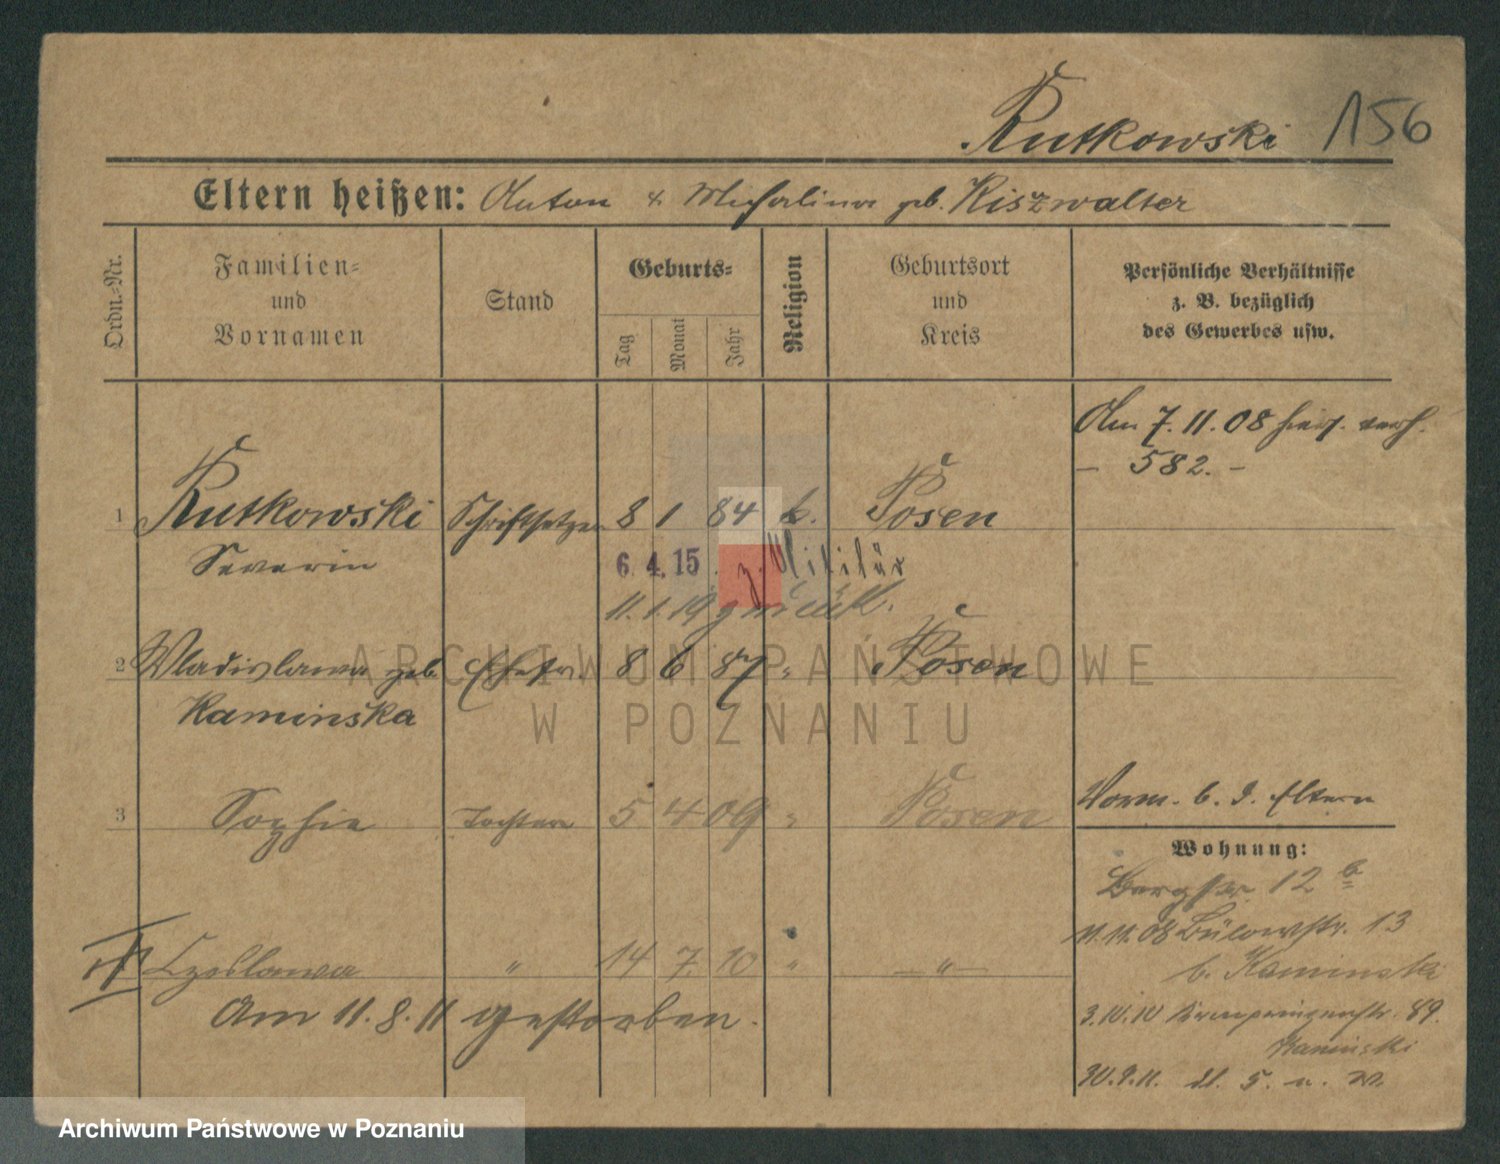 Rutkowski 156
Eltern heißen: Anton & Michalina geb. Kiszwalter
Ordn.-Nr.
Familien-
und
Vornamen
Stand
Geburts-
Tag
Monat
Jahr
Religion
Geburtsort
und
Kreis
Persönliche Verhältnisse
z. B. bezüglich
des Gewerbes usw.
Am 7.11.08 hier. verh.
– 582. –
1 Rutkowski Schriftsetzer 8 1 84 k. Posen
Severin
6.4.15. z. Militär
11.1.19 zurück.
2 Wladislawa geb. Ehefr. 8 6 87 " Posen
Kaminska
Vorm. b. d. Eltern
3 Sophie Tochter 5 4 09 " Posen
Wohnung:
Bergstr. 12 b
11.11.08 Bülowstr. 13
b. Kaminski
Czeslawa " 14 7. 10 " – " –
Am 11.8.11 gestorben.
3.10.10 Kronprinzenstr. 89.
Kaminski
30.9.11.
ARCHIWUM PAŃSTWOWE
W POZNANIU
Archiwum Państwowe w Poznaniu